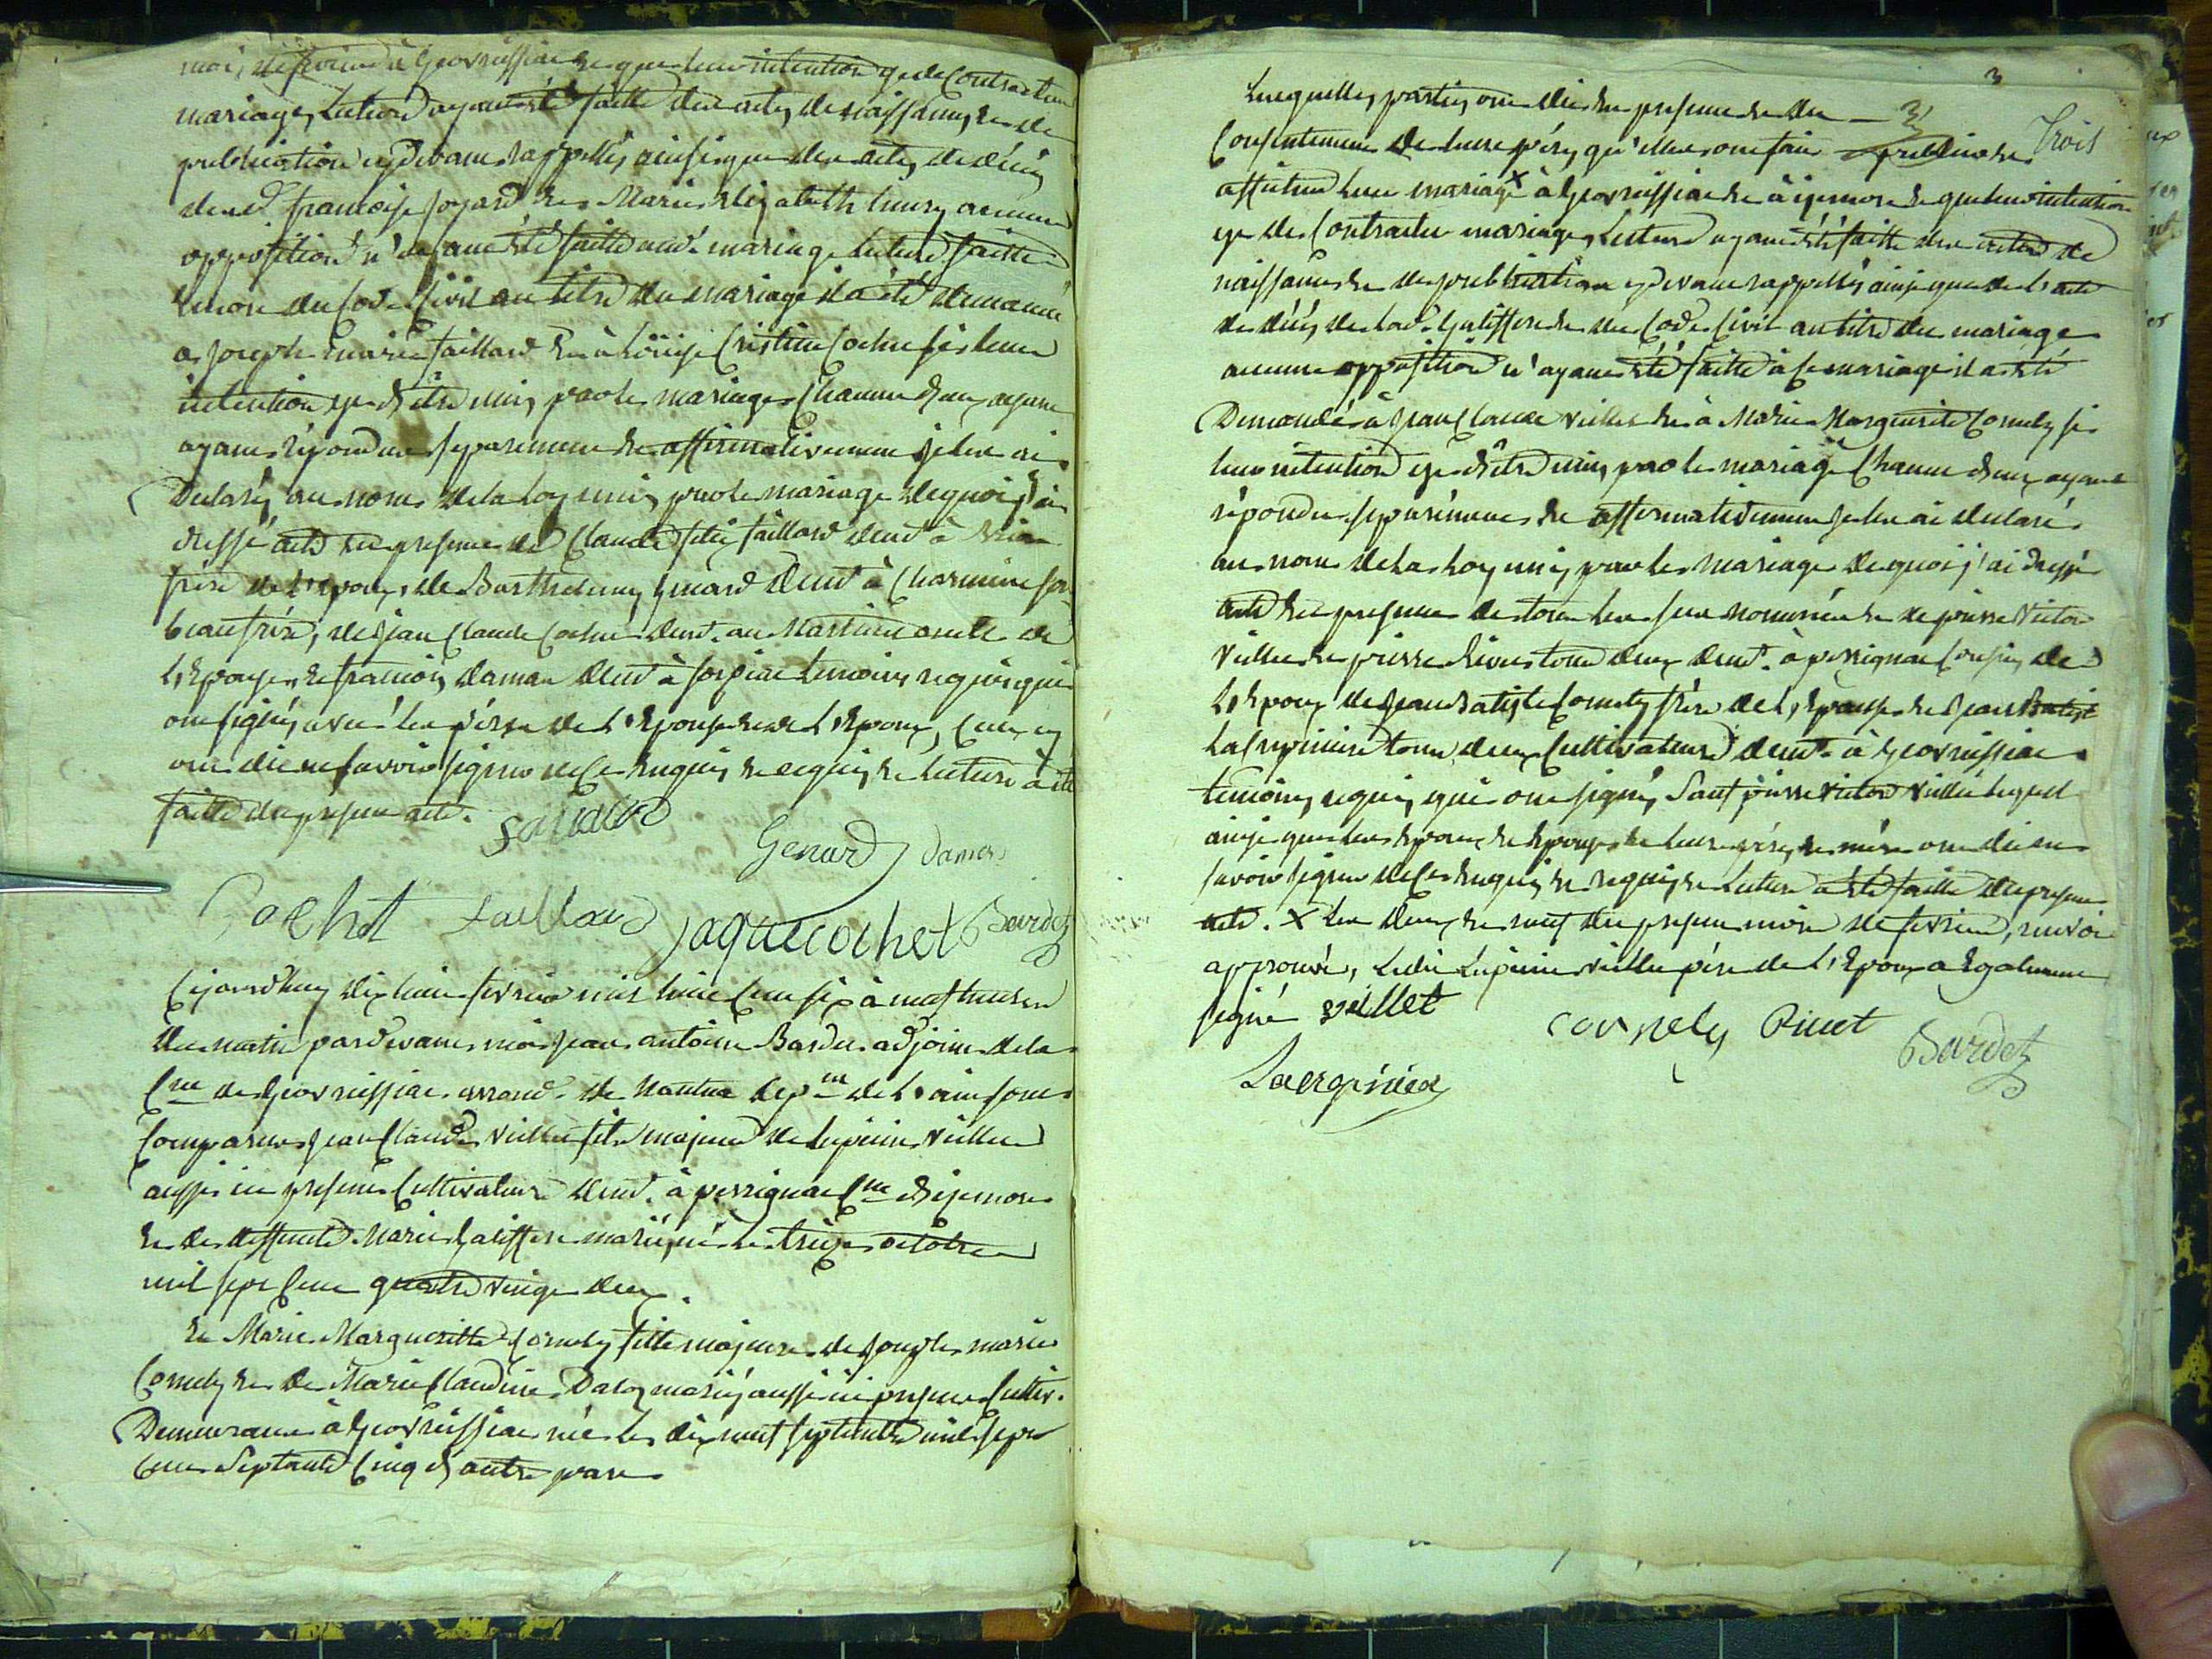 mois de fevrier à Geovreissiat et que leur intention est de Contracter
mariage, Lecture ayant été faitte des actes de naissances et de
publication cydevant rappellés ainsi que des actes de décès
de d. francoise Joyard et Marie Elizabeth henry aucune
opposition n'ayant été faitte aud. mariage Lecture faitte
encore du Code Civil au titre du mariage il a été demandé
a Joseph marie faillard et à Louise Cristine Cochet si leur
intention est d'etre unis par le mariage Chacun d'eux ayant
ayant répondu separement et affirmativement je les ai
Declarés au nom de la loy unis par le mariage de quoi j'ai
dressé acte en presence de Claude felix faillard demt à
frère de l'epoux, de Barthelemy Genard demt à Charmine son
beaufrère, de Jean Claude Cochet demt. au Martinet oncle de
L'Epouse, et francois daman demt à temoins requis qui
ont signés avec les pères de L'Epouse et de L'Epoux, Ceux cy
ont dit ne savoir signer de ce enquis et requis et Lecture a été
faitte du present acte.
faillard
Genard daman
Cochet faillard jaque cochet Bardet
Cejourdhuy dix huit fevrier mil huit Cent six à neuf heures
du matin pardevant moi Jean antoine Bardet adjoint de la
Cne de Geovreissiat arrond. de Nantua depm de L'ain sont
Comparus Jean Claude Villet fils majeur de Lupicin Villet
aussi ici present Cultivateurs demt. à perrignat Cne d'izernore
et de deffunte Marie Galiffet mariés, né le treize octobre
mil sept Cent quatre vingt deux.
Et Marie Margueritte Cornely fille majeure de Joseph marie
Cornely et de Marie Claudine Daloz mariés aussi ici presents Cultiv.
Demeurant à Geovreissiat née le dix neuf septembre mil sept
Cent Septante Cinq d'autre part
3
Lesquelles parties ont dit en presence et du — 3
Consentement de leurs pères qu'elles ont fait publier et Trois
afficher leur mariage X à Geovreissiat et à izernore et que leur intention
est de Contracter mariage, Lecture ayant été faitte des actes de
naissance et de publication cydevant rappellés ainsi que de L'acte
de décès de lad. Galiffet et du Code Civil au titre du mariage
aucune opposition n'ayant été faitte à ce mariage il a été
Demandé à Jean Claude Villet et à Marie Margueritte Cornely si
leur intention est d'être unis par le mariage Chacun d'eux ayant
répondu séparément et affirmativement je les ai declaré
au nom de la Loy unis par le mariage de quoi j'ai dressé
acte en presence de tous les sus nommés et de pierre Victor
Villet et pierre tous deux demt. à perrignat Cousins de
L'Epoux de Jean Batiste Cornely frère de L'Epouse et Jean Batist
Lacrepinière tous deux Cultivateurs demt. à Geovreissiat
temoins requis qui ont signés Sauf pierre Victor Villet lequel
ainsi que les Epoux et Epouse et leurs pères et mère ont dit ne
savoir signer de ce enquis et requis et Lecture a été faitte du present
acte. X les deux et neuf du present mois de fevrier, renvoi
approuvé, Ledit Lupicin villet père de L'Epoux a Egalement
signé villet
cornely Pinet Bardet
Lacrepinier